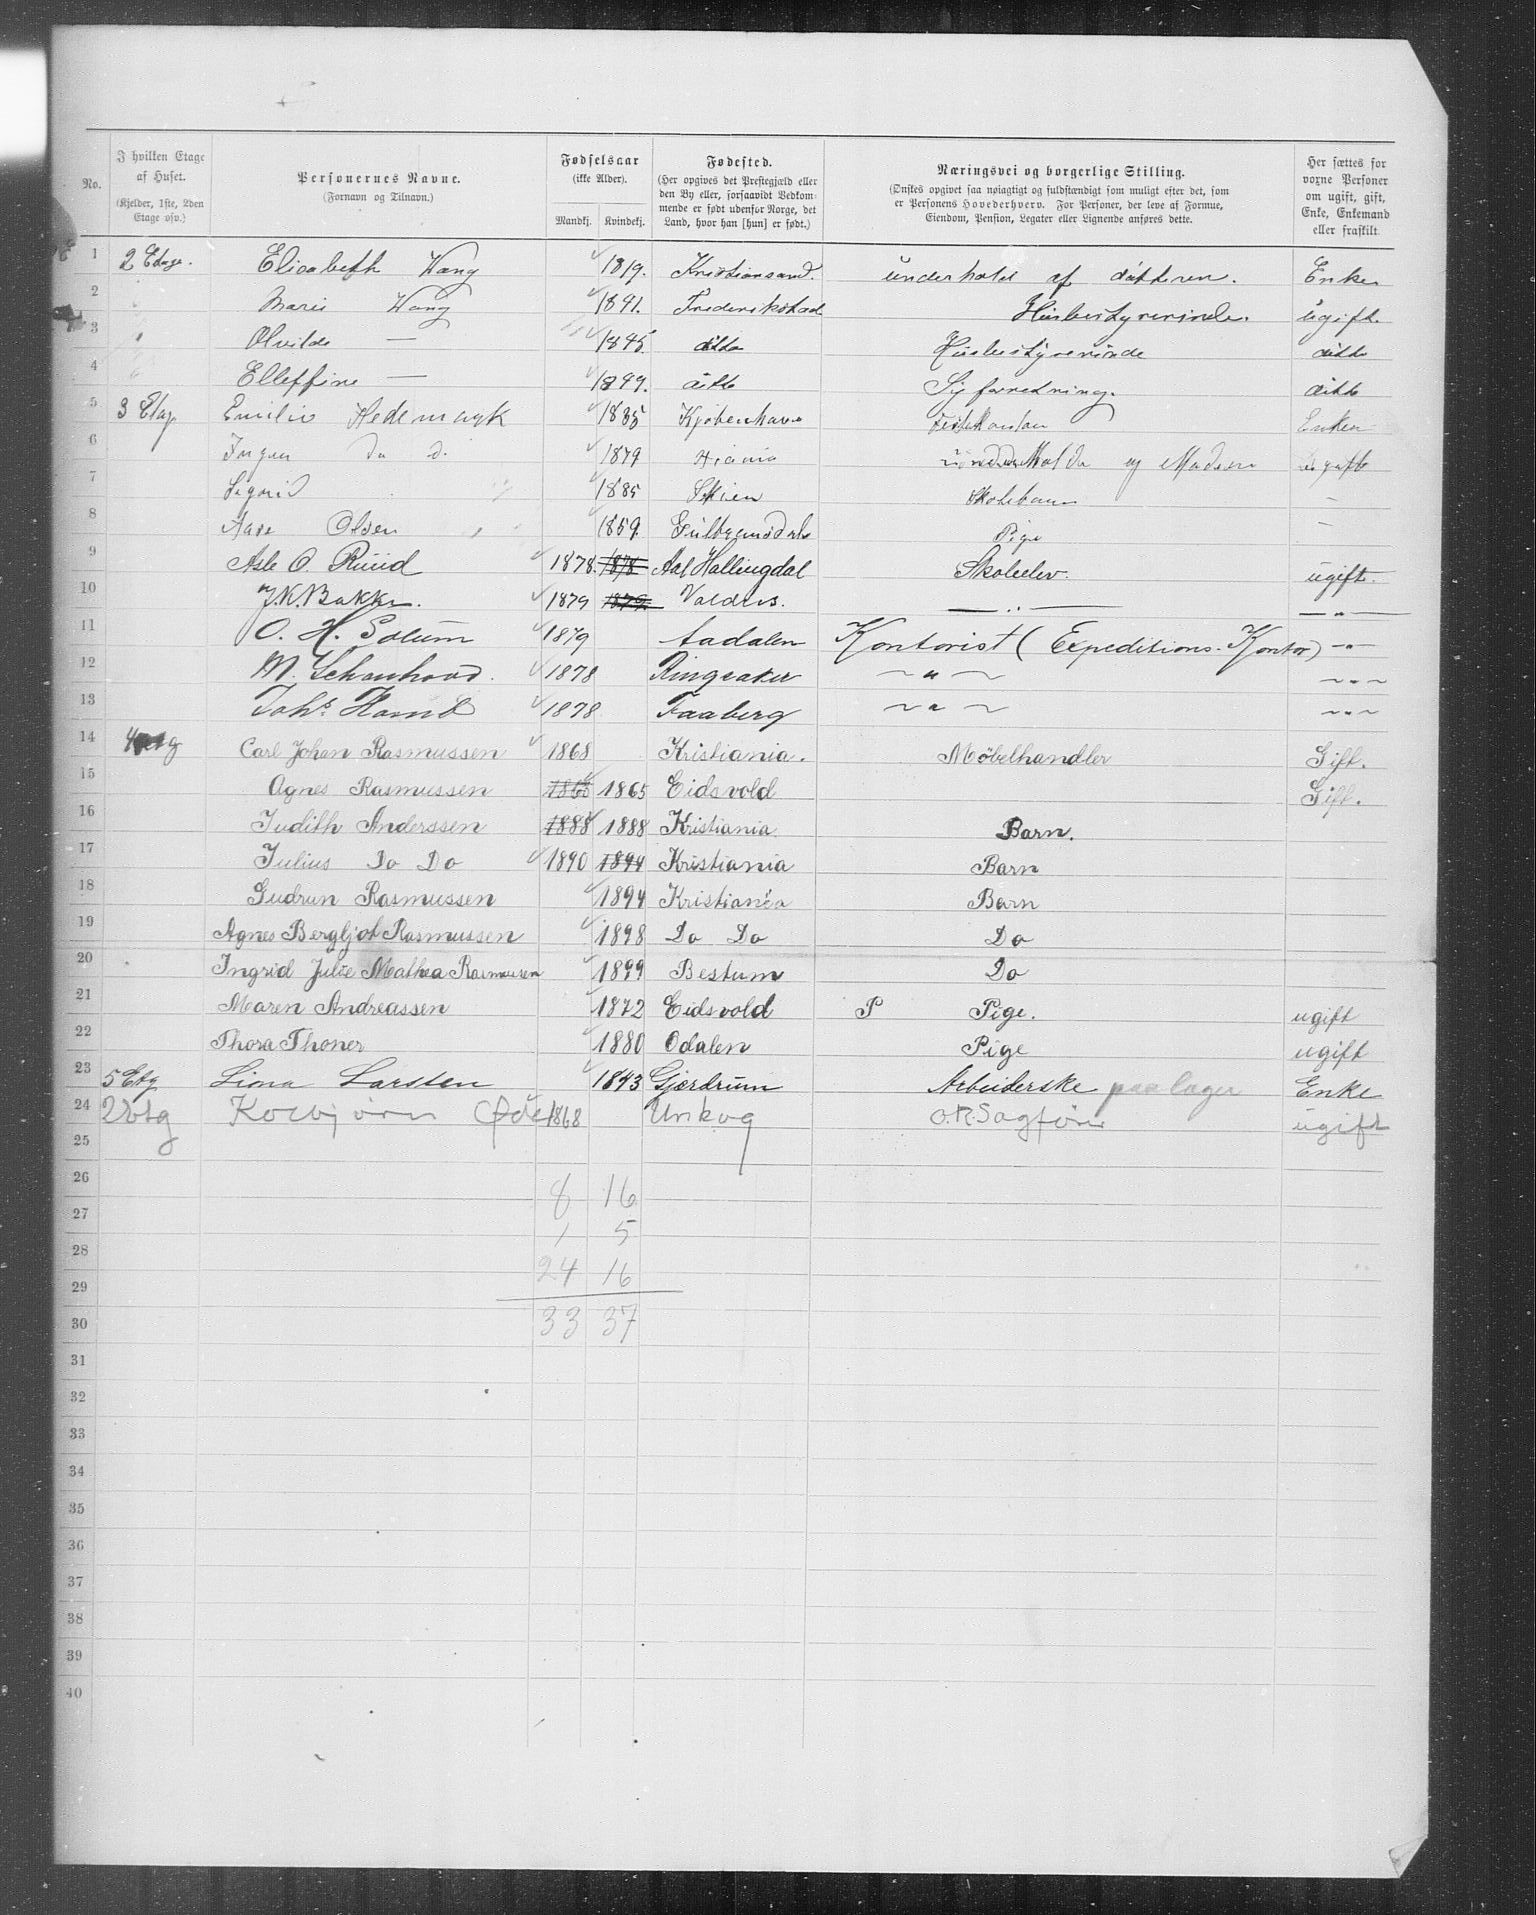 No.
I hvilken Etage af Huset. (Kjelder, 1ste, 2den Etage osv.)
Personernes Navne. (Fornavn og Tilnavn.)
Fødselsaar (ikke Alder). Mandkj. Kvindekj.
Fødested. (Her opgives det Prestegjæld eller den By eller, forsaavidt Vedkommende er født udenfor Norge, det Land, hvor han [hun] er født.)
Næringsvei og borgerlige Stilling. (Ønskes opgivet saa nøiagtigt og fuldstændigt som muligt efter det, som er Personens Hovederhverv. For Personer, der leve af Formue, Eiendom, Pension, Legater eller Lignende anføres dette.)
Her sættes for voxne Personer om ugift, gift, Enke, Enkemand eller fraskilt.
1 2 Etage. Elisabeth Wang 1819. Kristiansand. underhold af datteren. Enke
2 Marie Wang 1841. Frederikstad Husbestyrerinde. ugift.
3 — 1845 ditto Husbestyrerinde ditto
4 Elleffine — ditto Syforretning. ditto
5 3 Etag Emilie Hedemark 1835 Kjøbenhavn Enke
6 do d. 1879 og ugift
7 Sigrid 1885 Skien Skolebarn —
8 Olsen 1859. Gulbrandsdalen Pige —
9 Asle O. Ruud 1878. 1878 Aal Hallingdal Skoleelev. ugift.
10 J.K. Bakke. 1879 1879 Valdres. — „ — — „ —
11 O. H. Solum 1879 Aadalen Kontorist (Expeditions-Kontor) — „ —
12 M. 1878 Ringsaker — „ — — „ —
13 Johs. 1878 Faaberg — „ — — „ —
14 4 etg Carl Johan Rasmussen 1868 Kristiania. Möbelhandler Gift.
15 Agnes Rasmussen 1865 1865 Eidsvold Gift.
16 Judith Anderssen 1888 1888 Kristiania Barn.
17 Julius Do Do 1890 1894 Kristiania Barn
18 Gudrun Rasmussen 1894 Kristiania Barn
19 Agnes Bergljot Rasmussen 1898 Do Do Do
20 Ingrid Julie Mathea Rasmussen 1899 Bestum Do
21 Maren Andreassen 1872 Eidsvold P Pige. ugift
22 Thora Thoner 1880 Odalen Pige ugift
23 5 Etg Lina Larsten 1843 Gjerdrum Arbeiderske paa lager Enke
24 2 etg 1868 O.R. Sagfører ugift
25
26 8 16
27 1 5
28 24 16
29
30 33 37
31
32
33
34
35
36
37
38
39
40